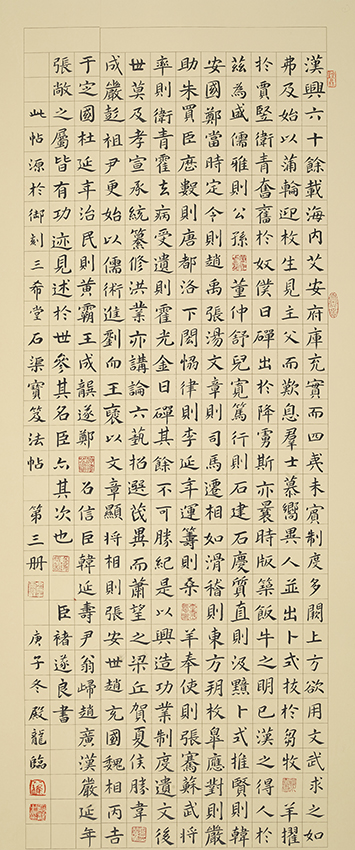 漢興六十餘載海內艾安府庫充實而四夷未賓制度多闕上方欲用文武求之如
弗及始以蒲輪迎枚生見主父而歎息羣士慕嚮異人並出卜式拔於芻牧羊擢
於賈豎衛青奮舊於奴僕日磾出於降虜斯亦曩時版築飯牛之明已漢之得人於
茲為盛儒雅則公孫董仲舒兒寬篤行則石建石慶質直則汲黯卜式推賢則韓
安國鄭當時定令則趙禹張湯文章則司馬遷相如滑稽則東方朔枚皋應對則嚴
助朱買臣歷數則唐都洛下閎恊律則李延年運籌則桑羊奉使則張騫蘇武將
率則衛青霍去病受遺則霍光金日磾其餘不可勝紀是以興造功業制度遺文後
世莫及孝宣承統纂修洪業亦講論六藝招選茂異而蕭望之梁丘賀夏侯勝韋
成嚴彭祖尹更始以儒術進劉向王襃以文章顯將相則張安世趙充國魏相丙吉
于定國杜延年治民則黃霸王成龔遂鄭召信臣韓延壽尹翁歸趙廣漢嚴延年
張敞之屬皆有功迹見述於世參其名臣亦其次也 臣褚遂良書
此帖源於御刻三希堂石渠寶笈法帖 第三冊 庚子冬殿龍臨